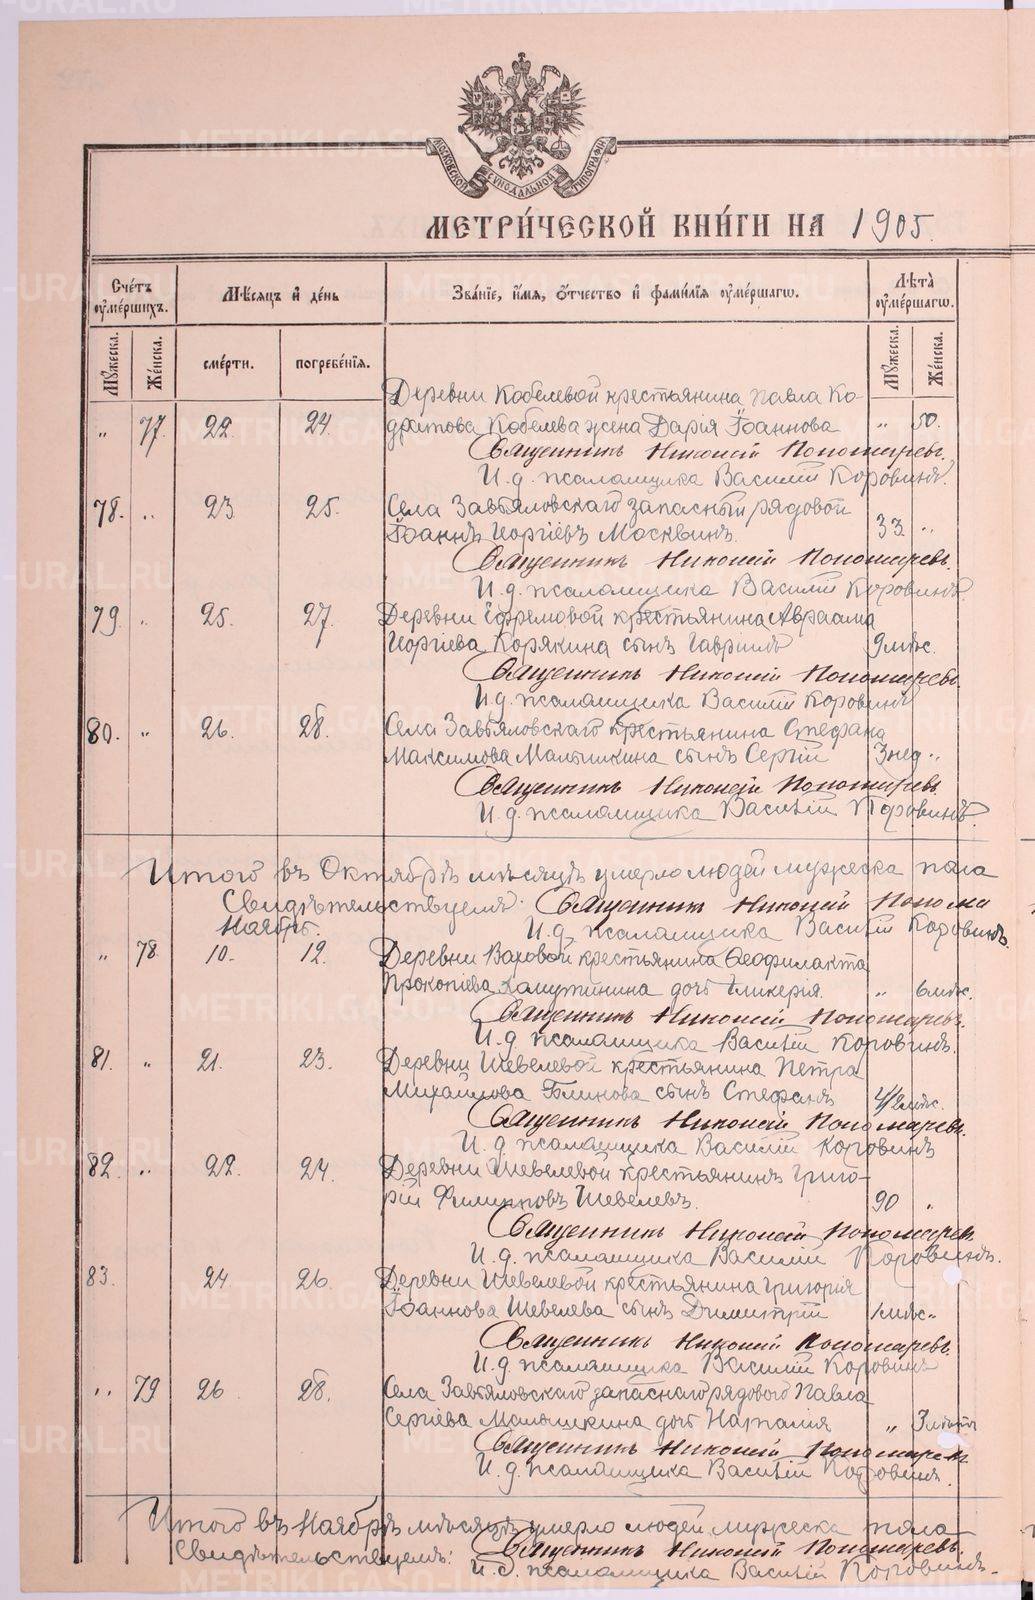 МОСКОВСКОЙ СѴНОДАЛЬНОЙ ТИПОГРАФІИ
МЕТРИ́ЧЕСКОЙ КНИ́ГИ НА 1905.
Счётъ ᲂумéршихъ.
Мѣсяцъ и дéнь
Звáніе, и́мя, óтчество и фами́лія ᲂумéршагѡ.
Лѣтà ᲂумéршагѡ.
Мýжеска.
Жéнска.
смéрти.
погребéнія.
Мýжеска.
Жéнска.
Деревни Кобелевой крестьянина Павла Ко-
" 77. 22. 24. дратова Кобелева жена Дарія Іоаннова " 50.
Священникъ Николай Пономаревъ.
И. д. псаломщика Василій Коровинъ.
78. " 23 25. Села Завьяловскаго запасный рядовой
Іоаннъ Георгіевъ Москвинъ. 33. "
Священникъ Николай Пономаревъ.
И. д. псаломщика Василій Коровинъ.
79. " 25. 27. Деревни Ефремовой крестьянина Авраама
Георгіева Корякина сынъ Гавріилъ 9 мѣс.
Священникъ Николай Пономаревъ.
И. д. псаломщика Василій Коровинъ
80. " 26. 28. Села Завьяловскаго крестьянина Стефана
Максимова Малышкина сынъ Сергій 3 нед. "
Священникъ Николай Пономаревъ.
И. д. псаломщика Василій Коровинъ.
Итого въ Октябрѣ мѣсяцѣ умерло людей мужеска пола
Свидѣтельствуемъ: Священникъ Николай Понома
Ноябрь. И. д. псаломщика Василій Коровинъ.
" 78. 10. 12. ДеревниВаховой крестьянина Ѳеофилакта
Прокопіева дочь Гликерія. " 6 мѣс.
Священникъ Николай Пономаревъ.
И. д. псаломщика Василій Коровинъ.
81. " 21. 23. Деревни Шевелевой крестьянина Петра
Михайлова Блинова сынъ Стефанъ 4 1/2 мѣс.
Священникъ Николай Пономаревъ.
И. д. псаломщика Василій Коровинъ
82. " 22. 24. Деревни Шевелевой крестьянинъ Григо-
рій Филипповъ Шевелевъ. 90 "
Священникъ Николай Пономаревъ.
И. д. псаломщика Василій Коровинъ.
83. 24 26. Деревни Шевелевой крестьянина Григорія
Іоаннова Шевелева сынъ Димитрій 1 мѣс. "
Священникъ Николай Пономаревъ.
И. д. псаломщика Василій Коровинъ
" 79 26. 28. Села Завьяловскаго запаснаго рядового Павла
Сергіева Малышкина дочь Наталія " 3 лѣтъ
Священникъ Николай Пономаревъ
И. д. псаломщика Василій Коровинъ.
Итого въ Ноябрѣ мѣсяцѣ умерло людей мужеска пола
Свидѣтельствуемъ: Священникъ Николай Пономаревъ.
И. д. псаломщика Василій Коровинъ.
METRIKI.GASO-URAL.RU